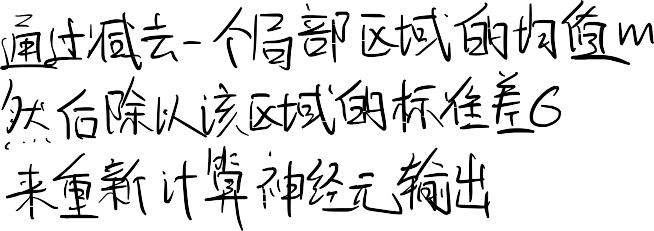 通过减去一个局部区域的均值m
然后除以该区域的标准差σ
来重新计算神经元输出